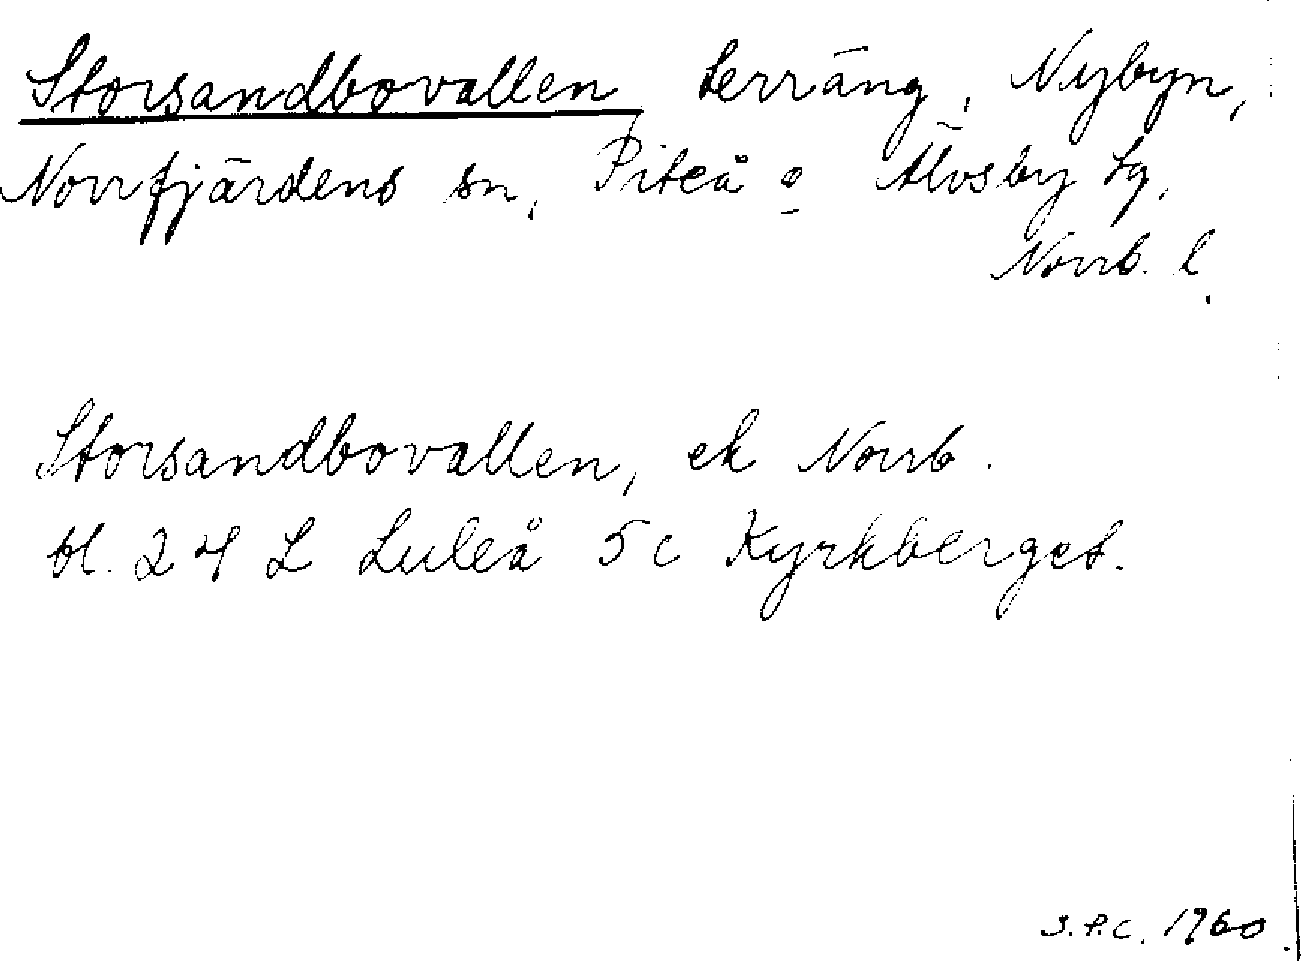 Storsandbovallen terräng, Nybyn,
Norrfjärdens sn, Piteå o Älvsby tg,
Norrb. l.
Storsandbovallen, ek Norrb.
bl. 24 L Luleå 5 c Kyrkberget.
S.P.C. 1960.